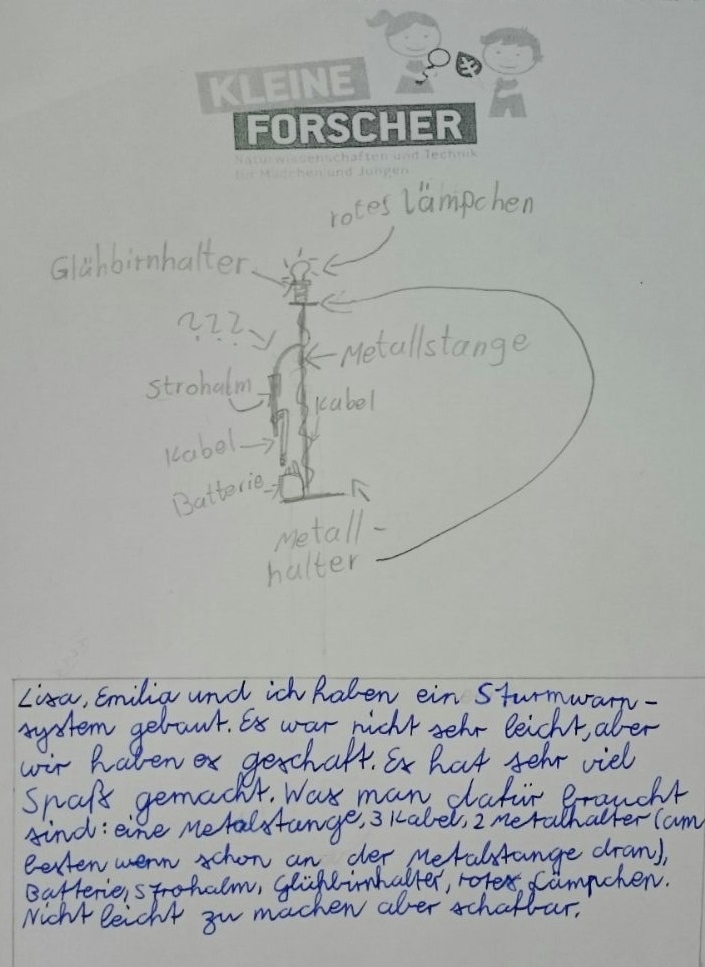 KLEINE
FORSCHER
Naturwissenschaften und Technik
für Mädchen und Jungen
rotes Lämpchen
Glühbirnhalter
???
Metallstange
Strohalm
Kabel
Kabel
Batterie
Metall-
halter
Lisa, Emilia und ich haben ein Sturmwarn-
system gebaut. Es war nicht sehr leicht, aber
wir haben es geschaft. Es hat sehr viel
Spaß gemacht. Was man dafür braucht
sind: eine Metalstange, 3 Kabel, 2 Metalhalter (am
besten wenn schon an der Metalstange dran),
Batterie, Strohalm, Glühbirnhalter, rotes Lämpchen.
Nicht leicht zu machen aber schafbar.